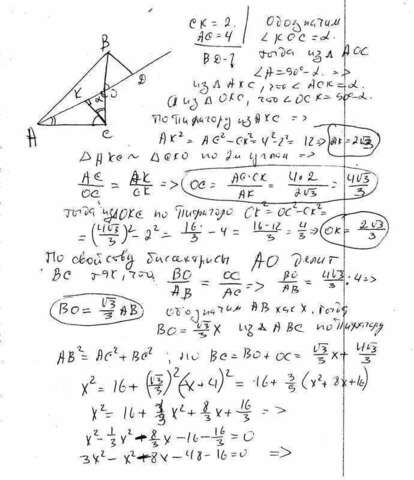 CK = 2. Обозначим
AC = 4 ∠KOC = α.
BD-? тогда из △AOC
∠A = 90° - α. =>
из △AKC, что ∠ACK = α.
а из △OKC, что ∠OCK = 90 - α.
По Пифагору из AKC =>
AK² = AC² - CK² = 4² - 2² = 12 => AK = 2√3
△AKC ~ △CKO по 2м углам =>
AC/OC = AK/CK => OC = AC·CK/AK = 4·2/2√3 = 4√3/3
тогда из OKC по Пифагору OK² = OC² - CK² =
= (4√3/3)² - 2² = 16/3 - 4 = 16-12/3 = 4/3 => OK = 2√3/3
По свойству биссектрисы AO делит
BC так, что BO/AB = OC/AC => BO/AB = 4√3/3 : 4 =>
BO = √3/3 AB обозначим AB как x, тогда
BO = √3/3 x из △ABC по Пифагору
AB² = AC² + BC²; но BC = BO + OC = √3/3 x + 4√3/3
x² = 16 + (√3/3)² (x + 4)² = 16 + 3/9 (x² + 8x + 16)
x² = 16 + 1/3 x² + 8/3 x + 16/3 =>
x² - 1/3 x² - 8/3 x - 16 - 16/3 = 0
3x² - x² - 8x - 48 - 16 = 0 =>
B
D
K
O
α
A
C